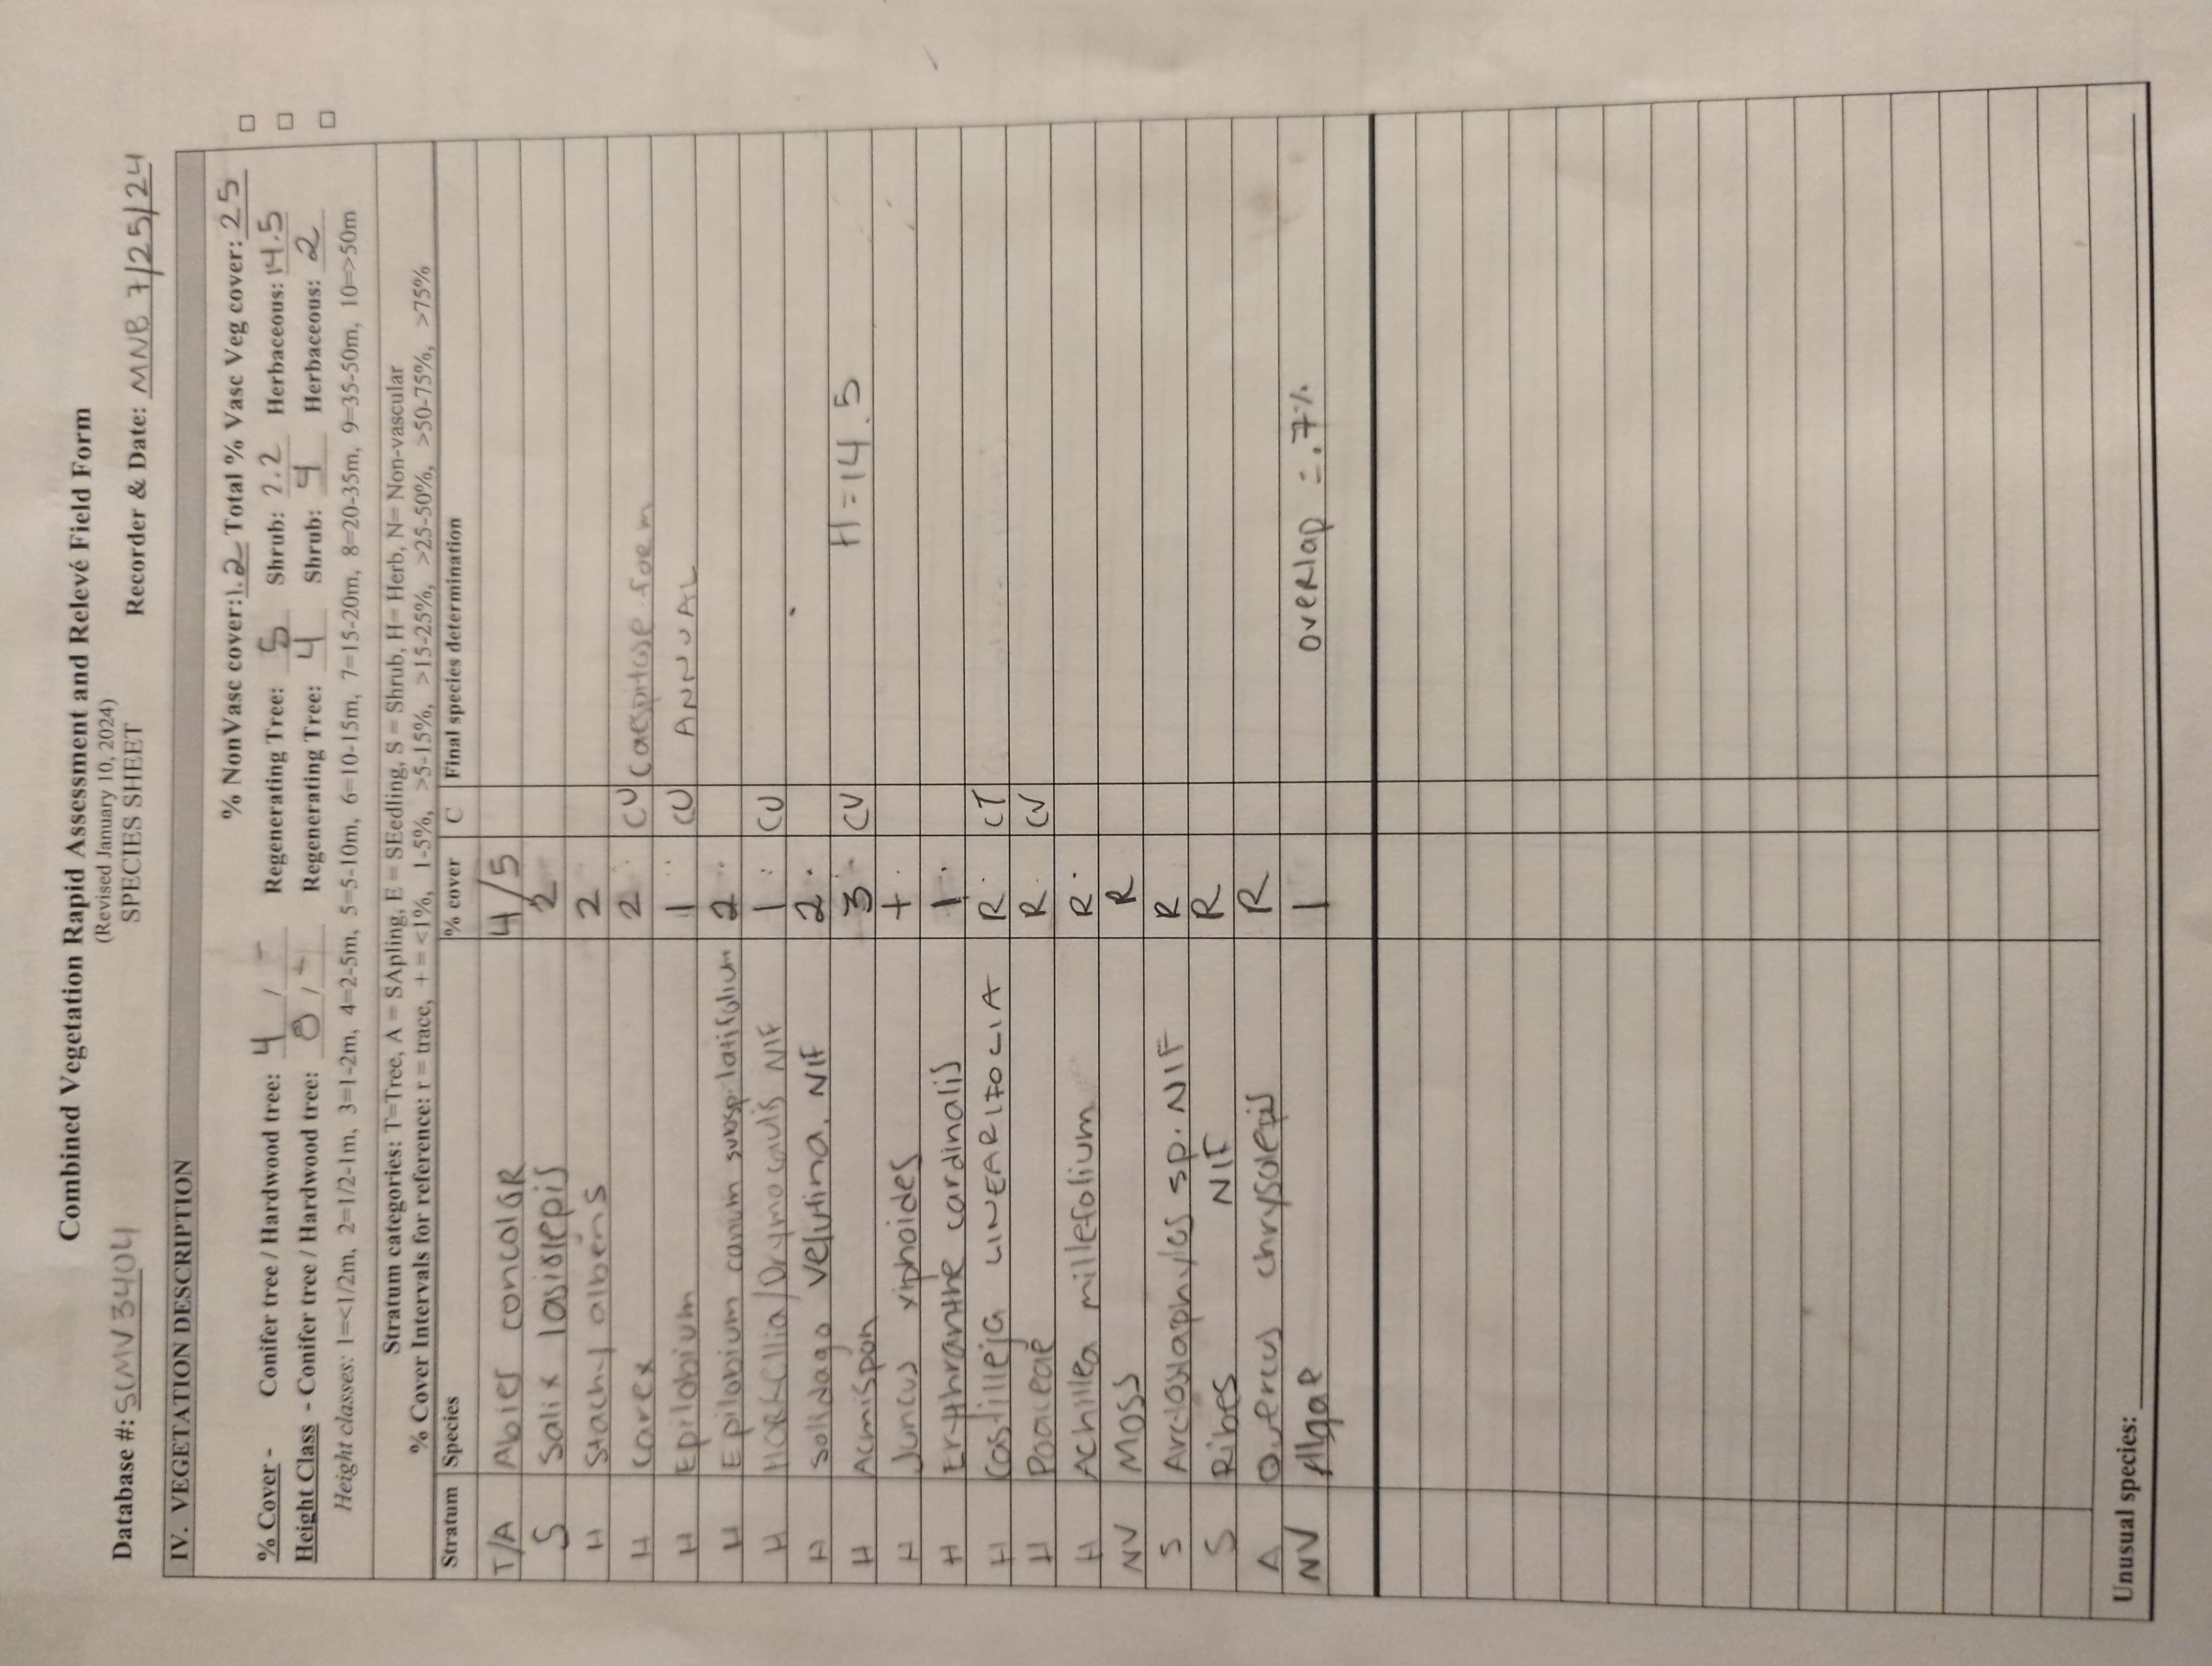 Combined Vegetation Rapid Assessment and Relevé Field Form
(Revised January 10, 2024)
SPECIES SHEET
Database #: SCMV3404 Recorder & Date: MNB 7/25/24
IV. VEGETATION DESCRIPTION
% NonVasc cover: 1.2 Total % Vasc Veg cover: 25
% Cover - Conifer tree / Hardwood tree: 4 / - Regenerating Tree: 5 Shrub: 2.2 Herbaceous: 14.5
Height Class - Conifer tree / Hardwood tree: 8 / - Regenerating Tree: 4 Shrub: 4 Herbaceous: 2
Height classes: 1=<1/2m, 2=1/2-1m, 3=1-2m, 4=2-5m, 5=5-10m, 6=10-15m, 7=15-20m, 8=20-35m, 9=35-50m, 10=>50m
Stratum categories: T=Tree, A = SApling, E = SEedling, S = Shrub, H= Herb, N= Non-vascular
% Cover Intervals for reference: r = trace, + = <1%, 1-5%, >5-15%, >15-25%, >25-50%, >50-75%, >75%
Stratum Species % cover C Final species determination
T/A Abies concoloR 4/5
S Salix lasiolepis 2
H Stachys albens 2
H Carex 2 CU Caespitose form
H Epilobium 1 CU ANNUAL
H Epilobium canum subsp. latifolium 2
H HORKELlia/Drymocaulis NIF 1 CU
H Solidago velutina. NIF 2
H Acmispon 3 CU H=14.5
H Juncus xiphoides +
H Erythranthe cardinalis 1
H Castilleja LINEARIFOLIA R CT
H Poaceae R CU
H Achillea millefolium R
NV Moss R
S Arctostaphylos sp. NIF R
S Ribes NIF R
A Quercus chrysolepis R
NV Algae 1 overlap = .7%
Unusual species: